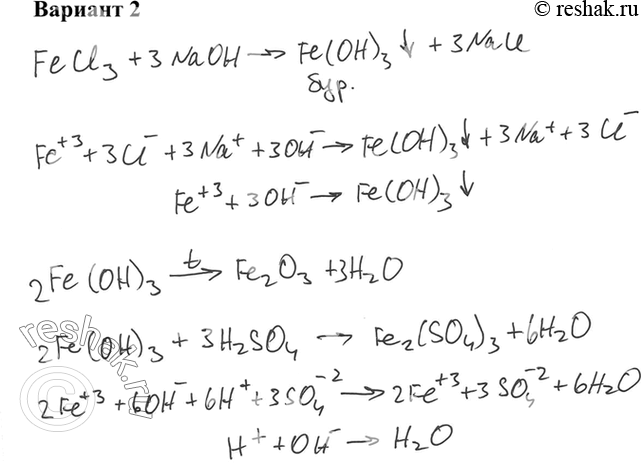 © reshak.ru
Вариант 2
FeCl₃ + 3NaOH → Fe(OH)₃↓ + 3NaCl
бур.
Fe⁺³ + 3Cl⁻ + 3Na⁺ + 3OH⁻ → Fe(OH)₃↓ + 3Na⁺ + 3Cl⁻
Fe⁺³ + 3OH⁻ → Fe(OH)₃↓
2Fe(OH)₃ →ᵗ Fe₂O₃ + 3H₂O
2Fe(OH)₃ + 3H₂SO₄ → Fe₂(SO₄)₃ + 6H₂O
2Fe⁺³ + 6OH⁻ + 6H⁺ + 3SO₄⁻² → 2Fe⁺³ + 3SO₄⁻² + 6H₂O
H⁺ + OH⁻ → H₂O
© reshak.ru